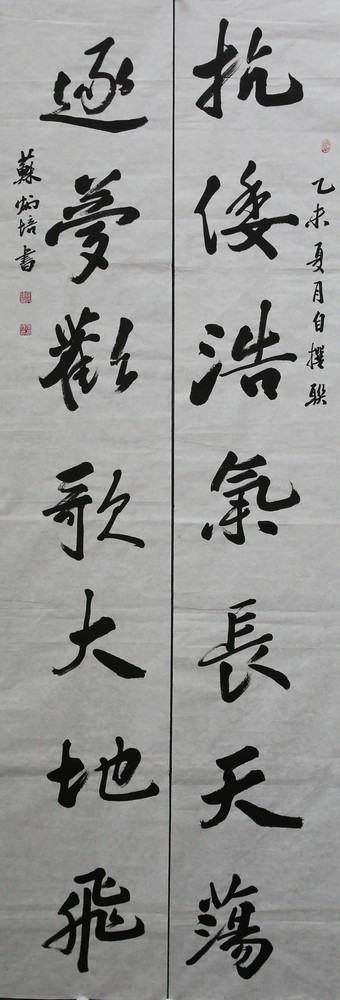 乙未夏月自撰联
抗倭浩氣長天蕩
逐夢歡歌大地飛
蘇炳培书